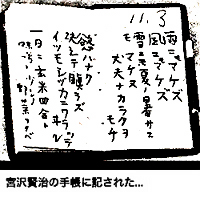 11.3
雨ニモマケズ
風ニモマケズ
雪ニモ夏ノ暑サニモ
マケヌ
丈夫ナカラダヲモチ
慾ハナク
決シテ瞋ラズ
イツモシヅカニワラッテヰル
一日ニ玄米四合ト
味噌ト少シノ野菜ヲタベ
宮沢賢治の手帳に記された...